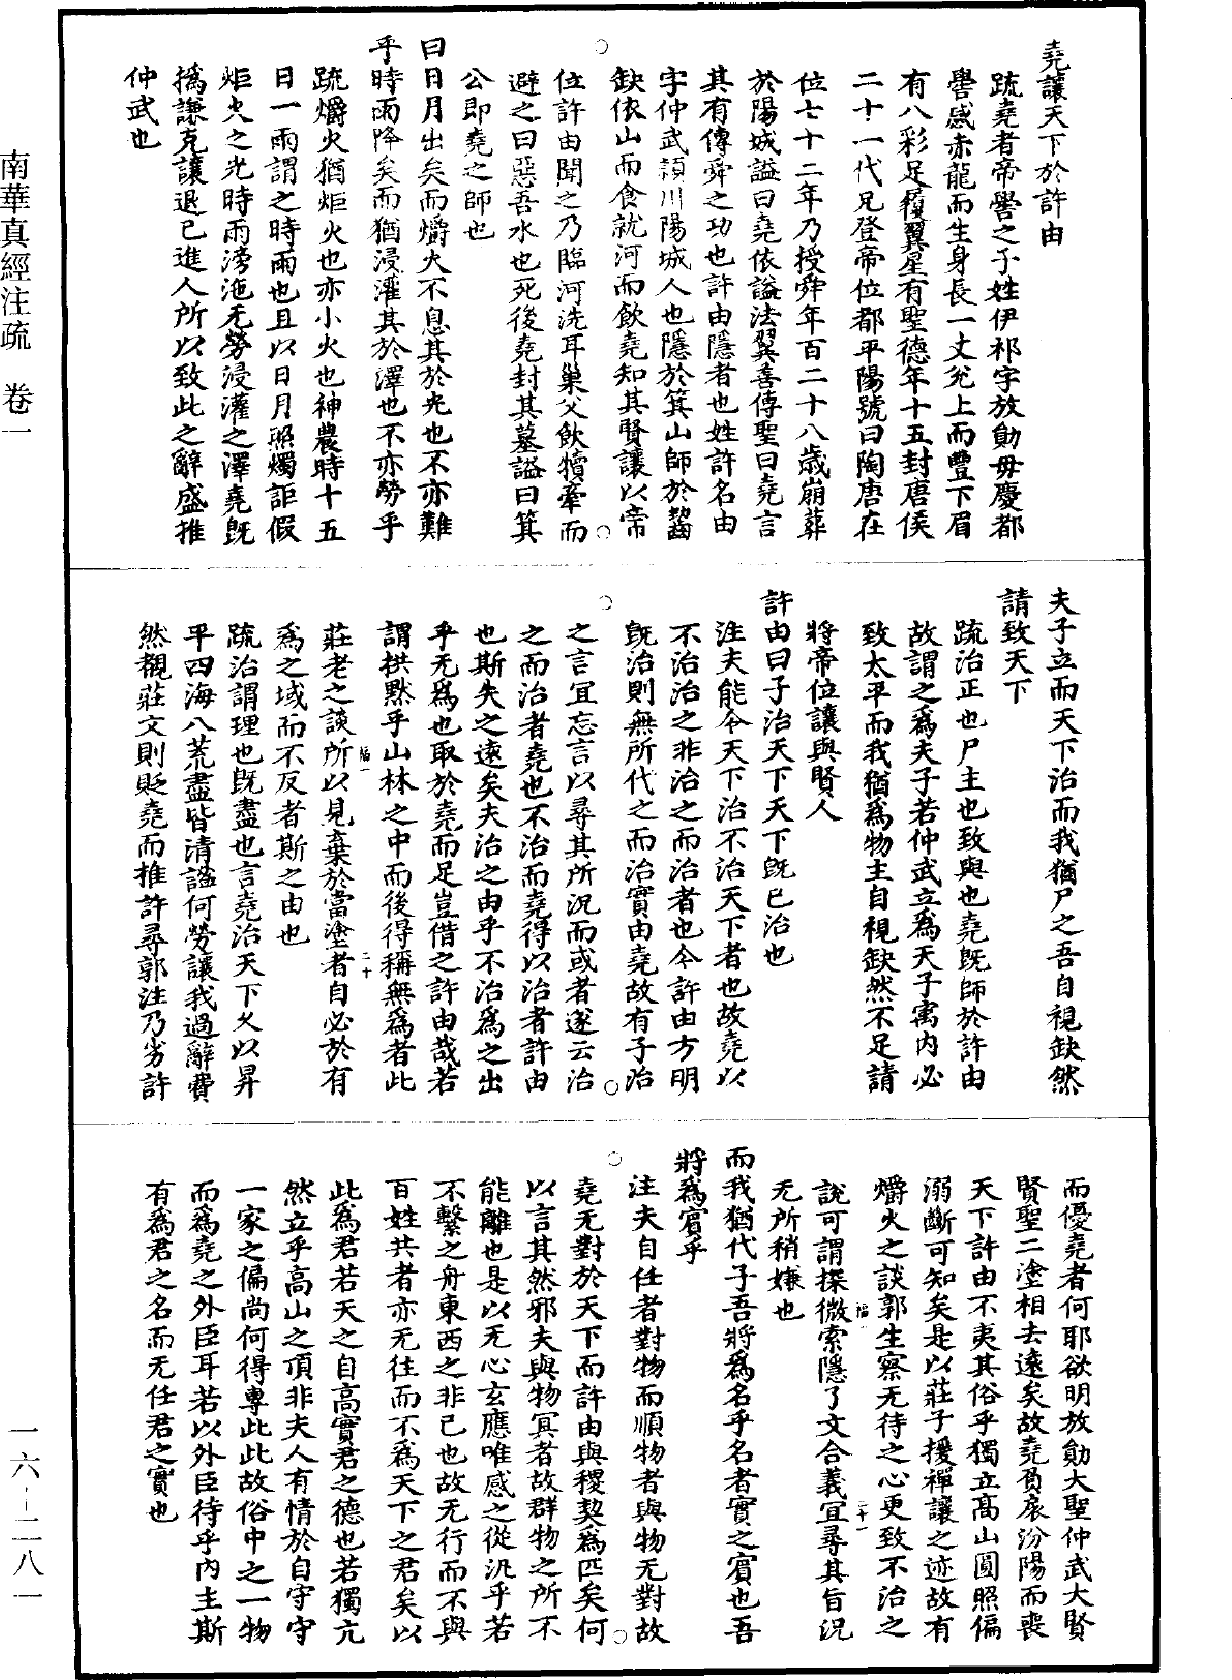 堯讓天下於許由
疏堯者帝嚳之子姓伊祁字放勛母慶都
嚳感赤龍而生身長一丈兊上而豐下眉
有八彩足履翼星有聖德年十五封唐侯
二十一代兄登帝位都平陽號曰陶唐在
位七十二年乃授舜年百二十八歲崩葬
於陽城謚曰堯依謚法翼善傳聖曰堯言
其有傳舜之功也許由隱者也姓許名由
字仲武潁川陽城人也隱於箕山師於齧
缺依山而食就河而飲堯知其賢讓以帝
位許由聞之乃臨河洗耳巢父飲犢牽而
避之曰惡吾水也死後堯封其墓謚曰箕
公即堯之師也
曰日月出矣而爝火不息其於光也不亦難
乎時雨降矣而猶浸灌其於澤也不亦勞乎
疏爝火猶炬火也亦小火也神農時十五
日一雨謂之時雨也且以日月照燭詎假
炬火之光時雨滂沲无勞浸灌之澤堯既
撝謙克讓退己進人所以致此之辭盛推
仲武也
夫子立而天下治而我猶尸之吾自視缺然
請致天下
疏治正也尸主也致與也堯既師於許由
故謂之為夫子若仲武立為天子寓內必
致太平而我猶為物主自視缺然不足請
將帝位讓與賢人
許由曰子治天下天下既已治也
注夫能令天下治不治天下者也故堯以
不治治之非治之而治者也今許由方明
既治則無所代之而治實由堯故有子治
之言宜忘言以尋其所況而或者遂云治
之而治者堯也不治而堯得以治者許由
也斯失之遠矣夫治之由乎不治為之出
乎无為也取於堯而足豈借之許由哉若
謂拱默乎山林之中而後得稱無為者此
莊老之談所以見棄於當塗者自必於有
為之域而不反者斯之由也
疏治謂理也既盡也言堯治天下久以昇
平四海八荒盡皆清謐何勞讓我過辭費
然覩莊文則貶堯而推許尋郭注乃劣許
而優堯者何耶欲明放勛大聖仲武大賢
賢聖二塗相去遠矣故堯負扆汾陽而喪
天下許由不夷其俗乎獨立高山圓照偏
溺斷可知矣是以莊子援禪讓之迹故有
爝火之談郭生察无待之心更致不治之
說可謂探微索隱了文合義宜尋其旨況
无所稍嫌也
而我猶代子吾將為名乎名者實之賓也吾
將為賓乎
注夫自任者對物而順物者與物无對故
堯无對於天下而許由與稷契為匹矣何
以言其然邪夫與物冥者故群物之所不
能離也是以无心玄應唯感之從汎乎若
不繫之舟東西之非己也故无行而不與
百姓共者亦无往而不為天下之君矣以
此為君若天之自高實君之德也若獨亢
然立乎高山之頂非夫人有情於自守守
一家之偏尚何得專此此故俗中之一物
而為堯之外臣耳若以外臣待乎內主斯
有為君之名而无任君之實也
南華真經注疏 卷一
一六-二八一